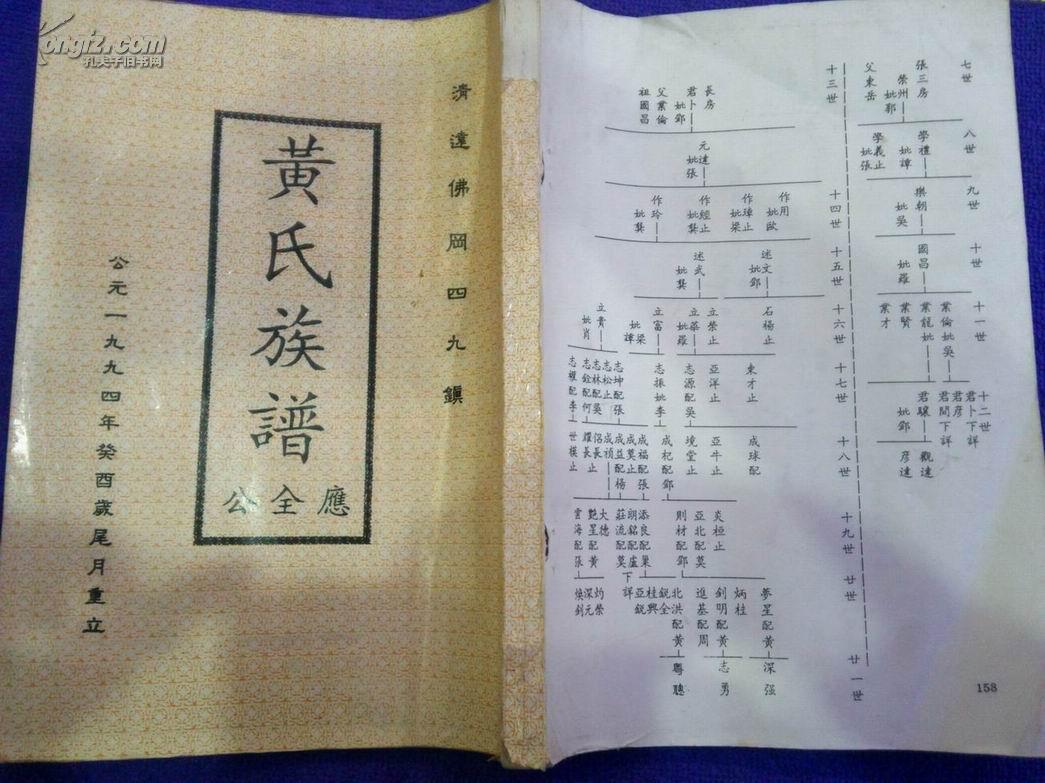 Kongfz.com
孔夫子旧书网
清遠佛岡四九鎮
黃氏族譜
應全公
公元一九九四年癸酉歲尾月重立
七世
張三房
榮州
妣鄭
父東岳
八世
學禮
妣譚
學義止
妣張
九世
樂朝
妣吳
十世
國昌
妣羅
十一世
業倫妣吳
業龍妣
業賢
業才
十二世
君卜下詳
君彥
君間下詳
君驤
妣鄧
觀達
彦達
十三世
長房
君卜
妣鄧
父業倫
祖國昌
元達
妣張
十四世
作用
妣歐
作璋止
妣梁
作經止
妣龔
作玲
妣龔
十五世
述文
妣鄧
述武
妣龔
十六世
石楊止
立榮止
立華
妣羅
立富
妣梁
妣譚
立貴
妣肖
十七世
東才止
亞洋止
志源配吳
志振妣李
志坤配張
志松止
志林配吳
志銓配何
志耀配李
十八世
成球配
亞牛止
境堂止
成杞配鄧
成福配張
成莫止
成益配楊
成禎
侶長止
耀長止
世模止
十九世
炎桓止
亞北配莫
則材配鄧
添良配巢
朗銘配盧
莊流配莫
大德
艷星配黃
雲海配張
廿世
夢星配黃
炳桂
釗明配黃
進基配周
北洪配黃
銳全
桂興
亞銳
下詳
灼榮
深元
煥釗
廿一世
深强
志勇
粵聰
158